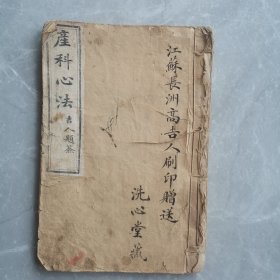 江蘇長洲高吉人刷印贈送
洗心堂藏
產科心法
吉人題簽